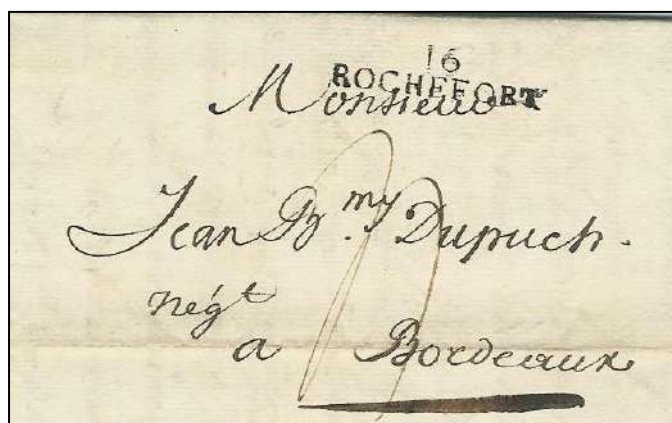 16
ROCHEFORT
Monsieur
Jean B.my Dupuch.
négt
a Bordeaux